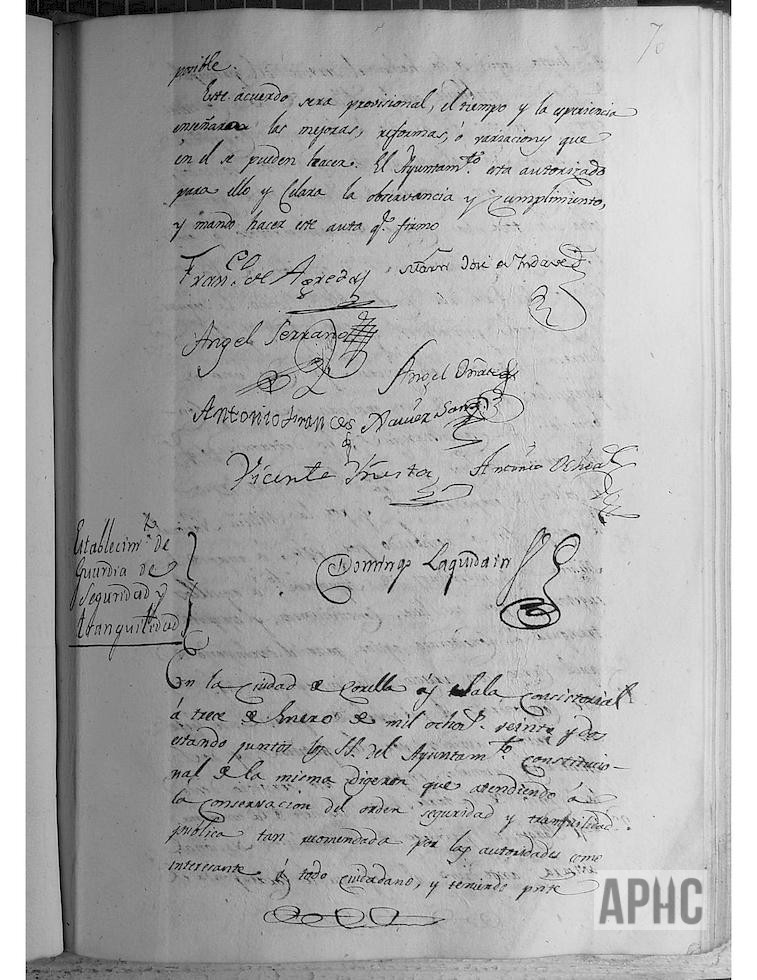 70
posible.
Este acuerdo sera provisional, el tiempo y la esperiencia
enseñaran las mejoras, reformas, ó variaciones que
en el se pueden hacer. El Ayuntam.to esta autorizado
para ello y Celara la observancia y cumplimiento,
y mando hacer este auto q.e firmo
Fran.co de Agreda José
Angel Serrano
Angel Oñate
Antonio Frances Xavier Sanz
Vicente Antonio Ochoa
Domingo Laquidain
Establecim.to de
Guardia de
Seguridad y
tranquilidad
En la Ciudad de Corella y Sala Consistorial
á trece de Enero de mil ochos. veinte y dos
estando juntos los SS. del Ayuntam.to Constitucio-
nal de la misma digeron que atendiendo á
la conservacion del orden seguridad y tranquilidad
publica tan recomendada por las autoridades como
interesante á todo ciudadano, y teniendo pnte
APHC